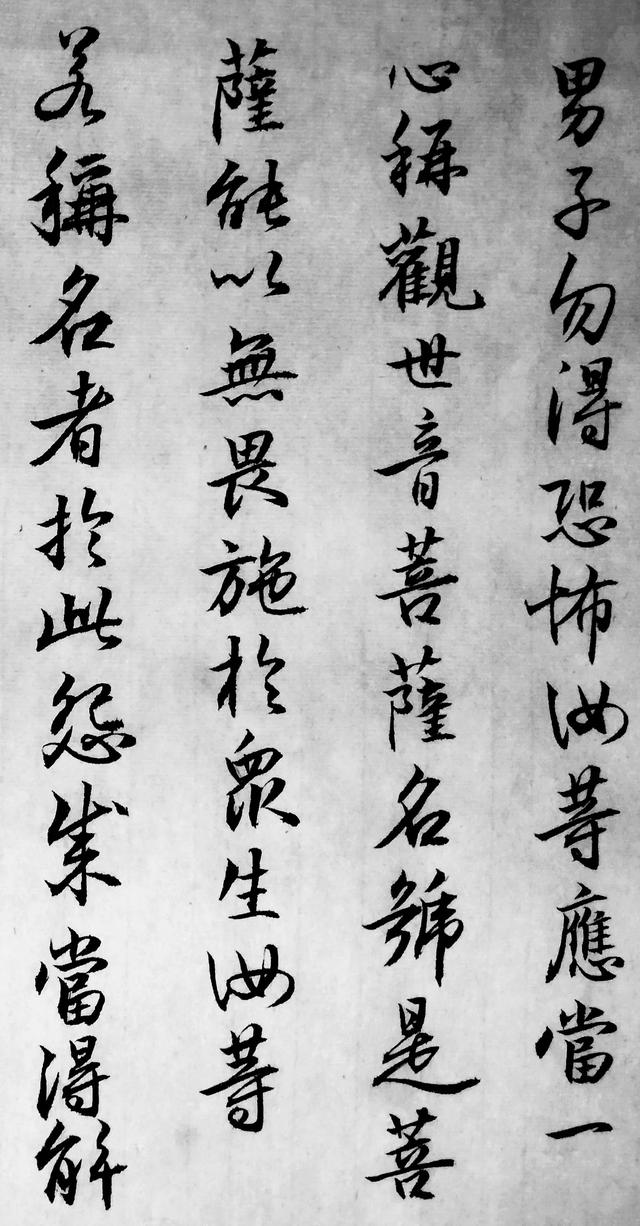 男子勿得恐怖汝等應當一
心稱觀世音菩薩名號是菩
薩能以無畏施於眾生汝等
若稱名者於此怨賊當得解